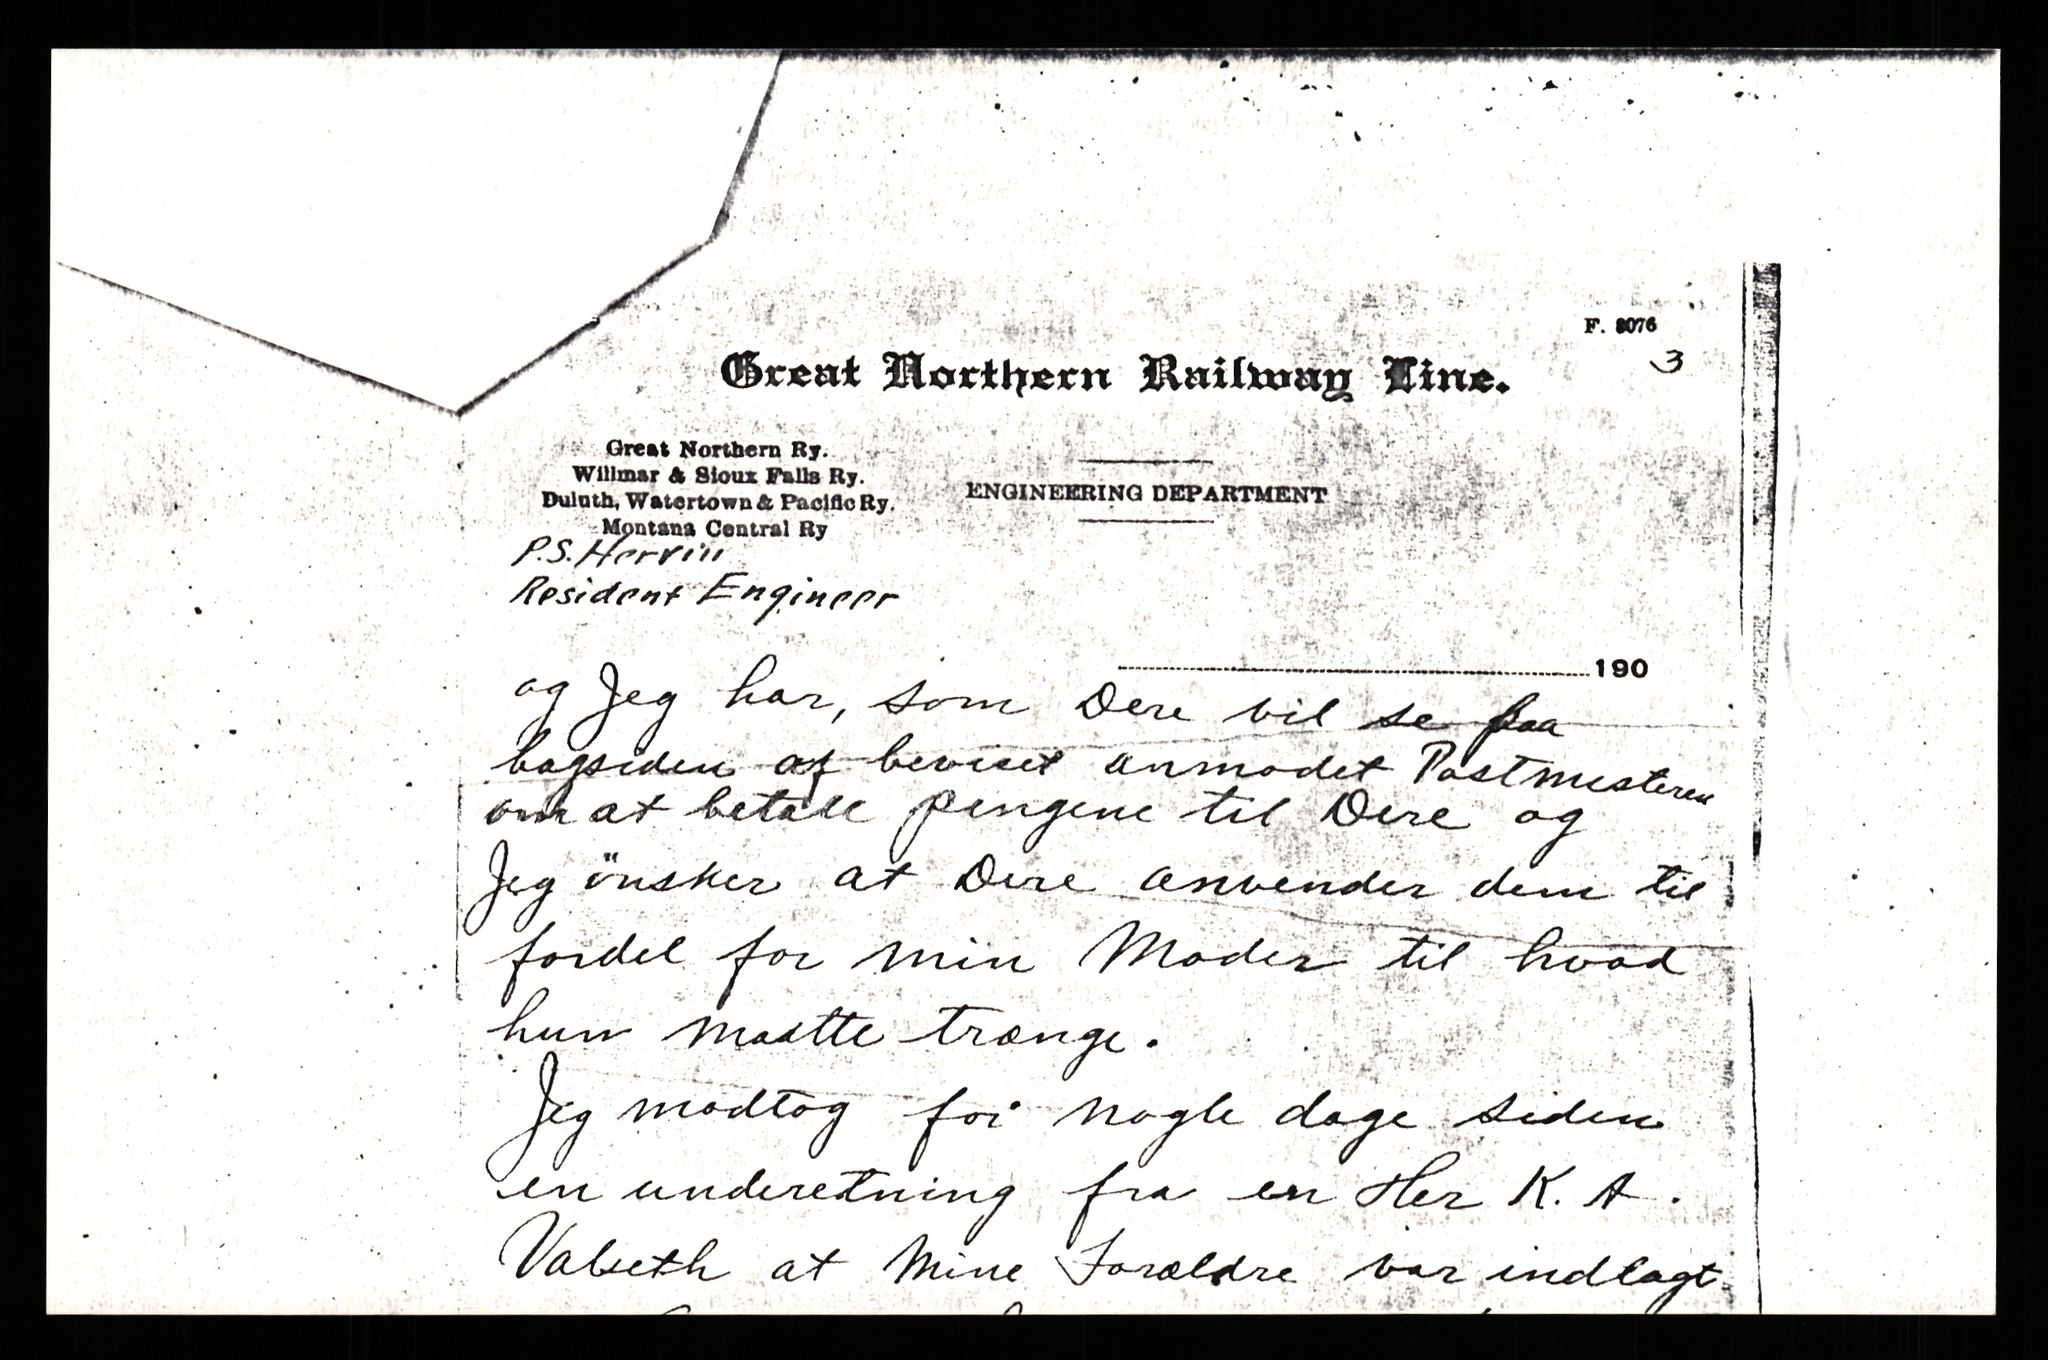 F. 3076
3
Great Northern Railway Line.
Great Northern Ry.
Willmar & Sioux Falls Ry.
Duluth, Watertown & Pacific Ry.
Montana Central Ry
ENGINEERING DEPARTMENT
P.S. Hervin
Resident Engineer
190
og Jeg har, som Dere vil se paa
bagsiden af beviset anmodet Postmesteren
om at betale pengene til Dere og
Jeg önsker at Dere anvender dem til
fordel for min Moder til hvad
hun maatte trænge.
Jeg modtog for nogle dage siden
en underetning fra en Her K. A.
Valseth at Mine Forældre var indlagt